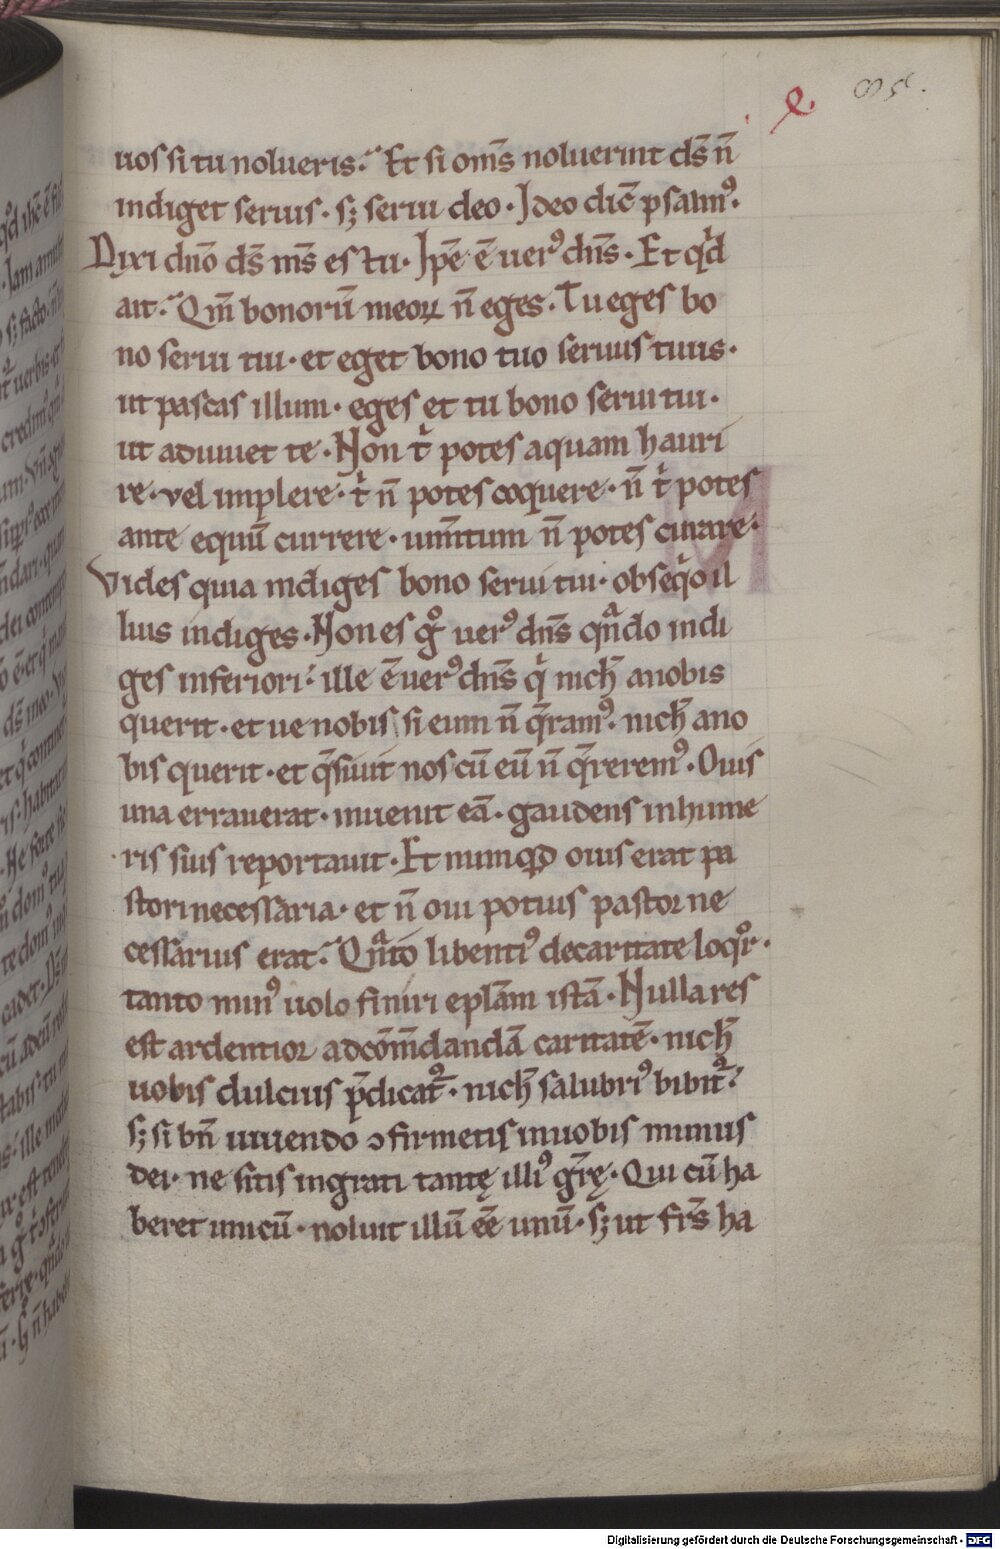 uos si tu nolueris. Et si om̄s noluerint ds̄ n̄
indiget seruis · sꝫ serui deo · Ideo dic̄ psalmꝰ.
Dixi dn̄o ds̄ ms̄ es tu · Ipē ē uerꝰ dn̄s · Et qͥd
ait. Qm̄ bonorū meoꝝ n̄ eges · Tu eges bo
no serui tui · et eget bono tuo seruus tuus ·
ut pascas illum · eges et tu bono serui tui ·
ut adiuuet te · Non tͥ potes aquam hauri
re · vel implere · tͥ n̄ potes coquere · n̄ tͥ potes
ante equū currere · iumtum n̄ potes curare ·
Vides quia indiges bono serui tui · obseqͥo il
lius indiges · Non es gͦ uerꝰ dn̄s qn̄do indi
ges inferiori · ille ē uerꝰ dn̄s qͥ nich̄ a nobis
querit · et ue nobis si eum n̄ q̄ramꝰ · nich̄ a no
bis querit · et q̄siuit nos cū eū n̄ q̄reremꝰ · Ouis
una errauerat · inuenit eā · gaudens in hume
ris suis reportauit · Et numqͥd ouis erat pa
stori necessaria · et n̄ oui potius pastor ne
cessarius erat. Qͣnto libentiꝰ de caritate loqͦr ·
tanto minꝰ uolo finiri eplam istā · Nulla res
est ardentior ad com̄dandā caritatē · nich̄
uobis dulcius p̄dicat᷑ · nich̄ salubriꝰ bibit᷑
sꝫ si bn̄ uiuendo ꝯfirmetis in uobis munus
dei · ne sitis ingrati tantę illiꝰ gr̄ę · Qui cū ha
beret unicū · noluit illū eē unū · sꝫ ut frs̄ ha
Digitalisierung gefördert durch die Deutsche Forschungsgemeinschaft - DFG